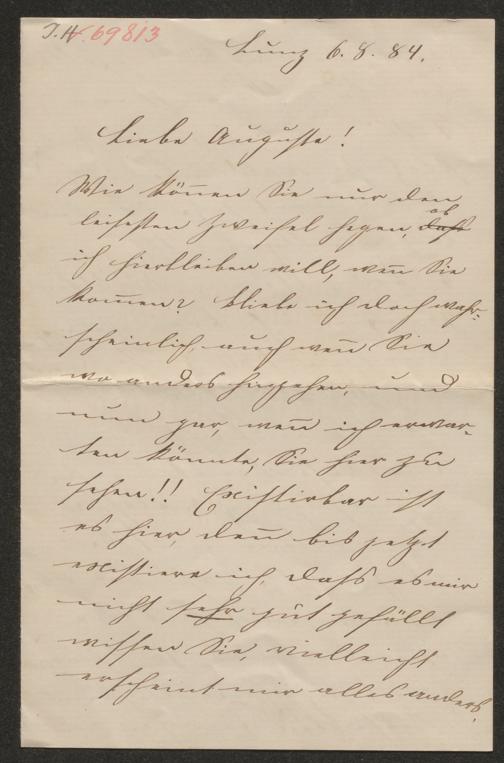 J.N. 69813
Lunz 6. 8. 84.
Liebe Auguste!
Wie können Sie nur den
ob
leisesten Zweifel hegen, dass
ich hierbleiben will, wen̄ Sie
kom̄en? Bliebe ich doch wahr-
scheinlich, auch wen̄ Sie
wo anders hingehen, und
nun gar, wen̄ ich erwar-
ten könnte, Sie hier zu
sehen!! Existirbar ist
es hier, den̄ bis jetzt
existiere ich, dass es mir
nicht sehr gut gefällt
wissen Sie, vielleicht
erscheint mir alles anders,